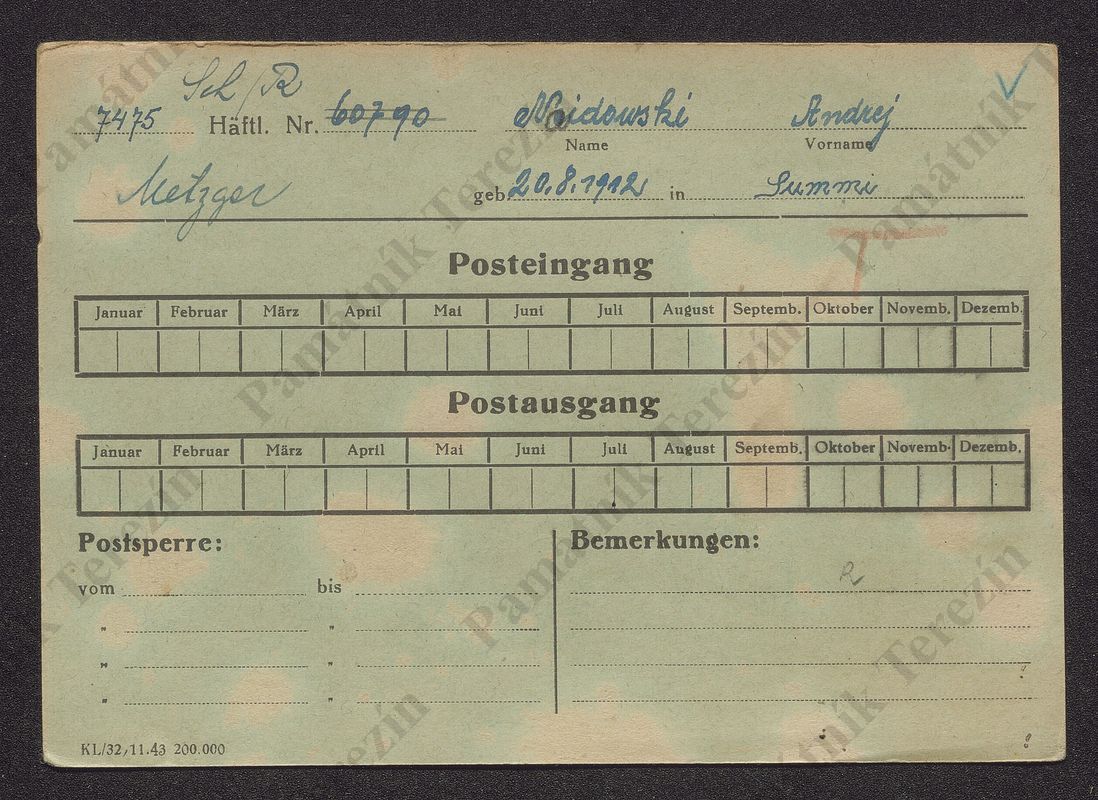 Sch/R
7475 Häftl. Nr. 60790 Andrej
Name Vorname
Metzger geb. 20.8.1912 in Summi
Posteingang
Januar Februar März April Mai Juni Juli August Septemb. Oktober Novemb. Dezemb.
Postausgang
Januar Februar März April Mai Juni Juli August Septemb. Oktober Novemb. Dezemb.
Postsperre: Bemerkungen:
R
vom bis
" "
" "
" "
KL/32/11.43 200.000
Památník Terezín